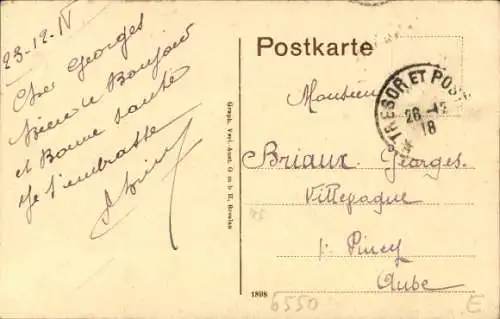 23-12-18
Cher Georges
Bien le Bonjour
et Bonne santé
Je t'embrasse
Postkarte
TRESOR ET POSTES
28-12
18
Monsieur
Briaux Georges.
Villepagne
p. Piney
Aube
Graph. Verl.-Anst. G m b H, Breslau
1808
6550
E